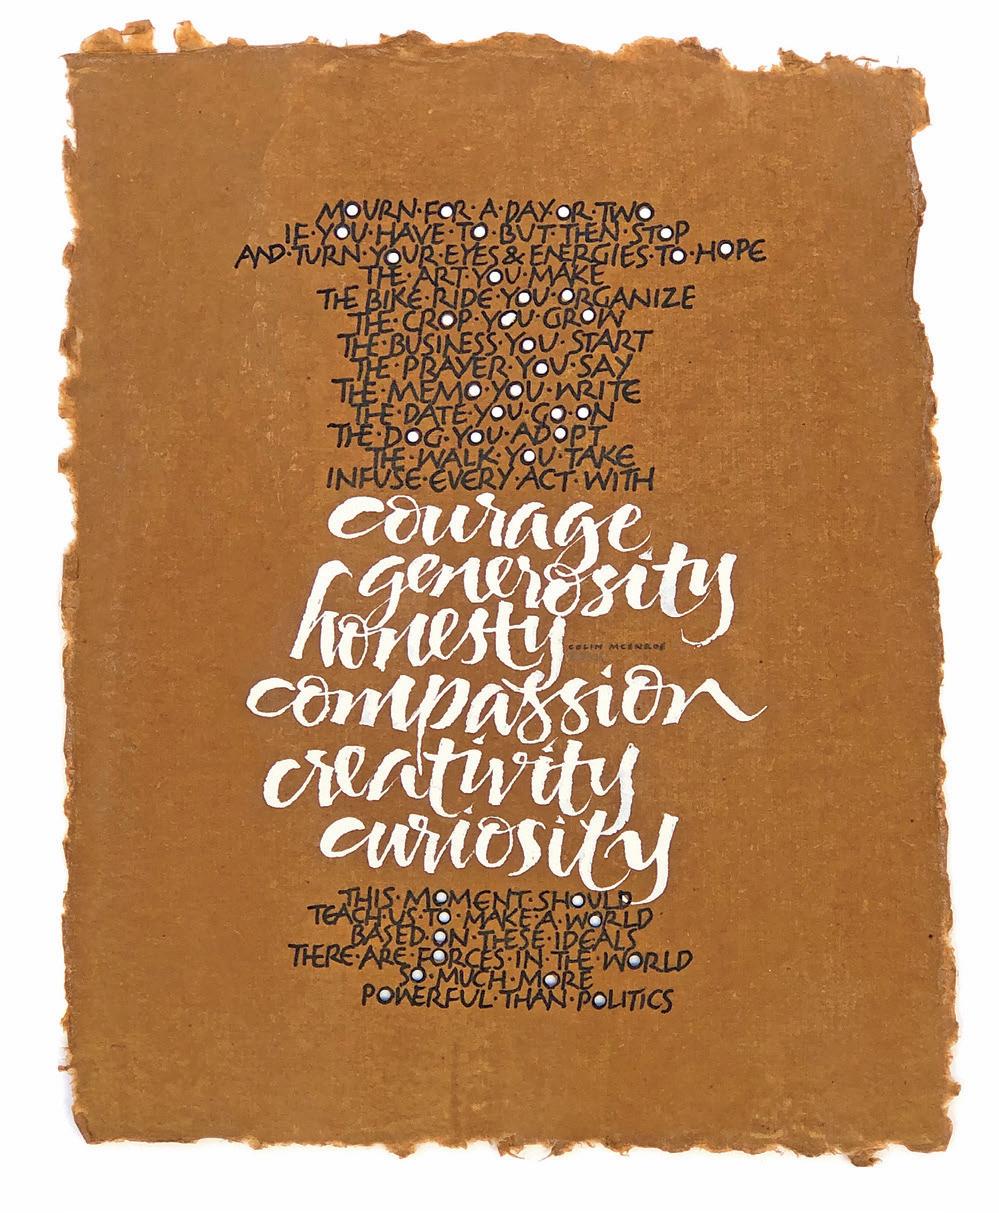 MOURN·FOR·A·DAY·OR·TWO
IF·YOU·HAVE·TO·BUT·THEN·STOP
AND·TURN·YOUR·EYES&ENERGIES·TO·HOPE
THE·ART·YOU·MAKE
THE·BIKE·RIDE·YOU·ORGANIZE
THE·CROP·YOU·GROW
THE·BUSINESS·YOU·START
THE·PRAYER·YOU·SAY
THE·MEMO·YOU·WRITE
THE·DATE·YOU·GO·ON
THE·DOG·YOU·ADOPT
THE·WALK·YOU·TAKE
INFUSE·EVERY·ACT·WITH
courage
generosity
honesty
COLIN MCENROE
compassion
creativity
curiosity
THIS·MOMENT·SHOULD
TEACH·US·TO·MAKE·A·WORLD
BASED·ON·THESE·IDEALS
THERE·ARE·FORCES·IN·THE·WORLD
SO·MUCH·MORE
POWERFUL·THAN·POLITICS